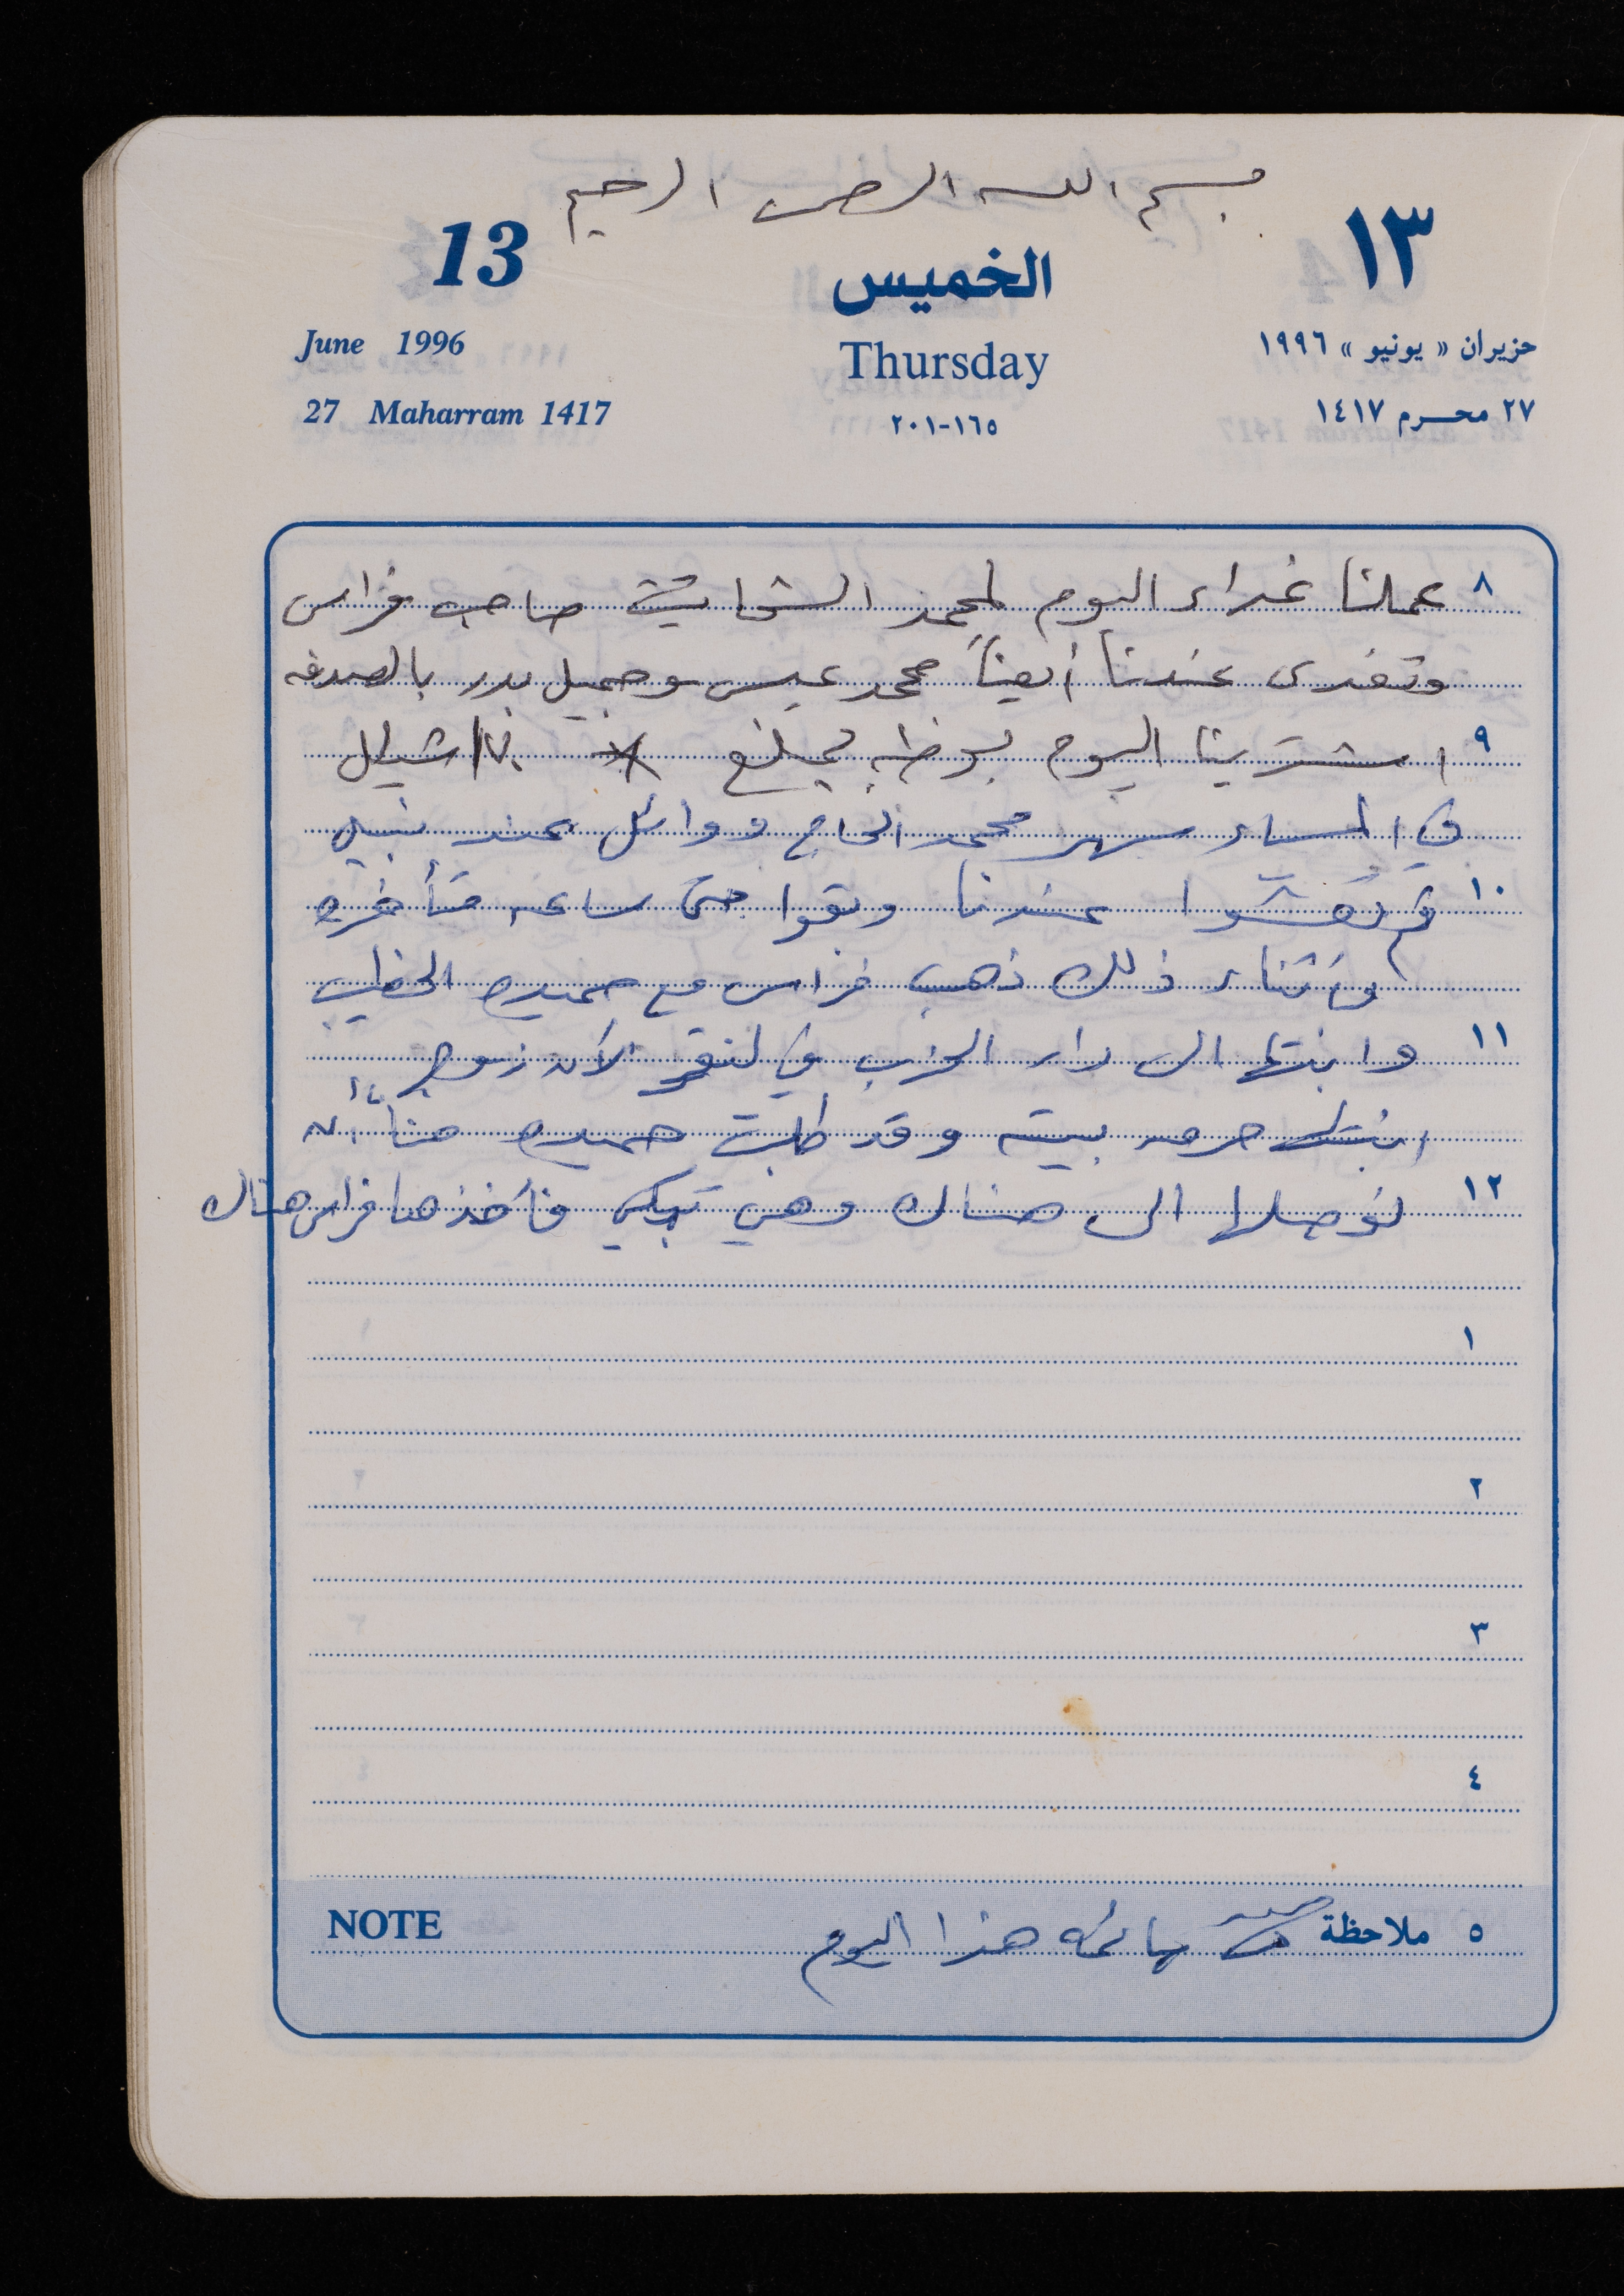 بسم الله الرحمن الرحيم
13 ١٣
الخميس
June 1996 Thursday حزيران « يونيو » ١٩٩٦
27 Maharram 1417 ١٦٥-٢٠١ ٢٧ محـرم ١٤١٧
٨ عملنا غداء اليوم لمحمد صاحب فراس
وتغدى عندنا أيضاً محمد عيسى وجميل بدر بالصدفه
٩ اشترينا اليوم بوظه بمبلغ شيكل
في المساء سهر محمد الحاج ووائل عند نبيل
١٠ ثم تعشوا عندنا وبقوا حتى ساعه متأخره
وأثناء ذلك ذهب فراس مع حميده الخطيب
١١ وابنتها الى دار العزب في لأن زوج
ابنتها بيته وقد طلبت حميده منا ان
١٢ نوصلها الى هناك وهي تبكي فأخذها فراس هناك
١
٢
٣
٤
NOTE ٥ ملاحظة هذا اليوم